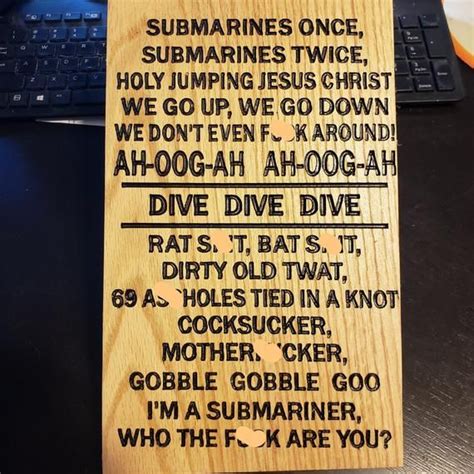 SUBMARINES ONCE,
SUBMARINES TWICE,
HOLY JUMPING JESUS CHRIST
WE GO UP, WE GO DOWN
WE DON'T EVEN F K AROUND!
AH-OOG-AH AH-OOG-AH
DIVE DIVE DIVE
RAT S T, BAT S T,
DIRTY OLD TWAT,
69 AS HOLES TIED IN A KNOT
COCKSUCKER,
MOTHER CKER,
GOBBLE GOBBLE GOO
I'M A SUBMARINER,
WHO THE F K ARE YOU?